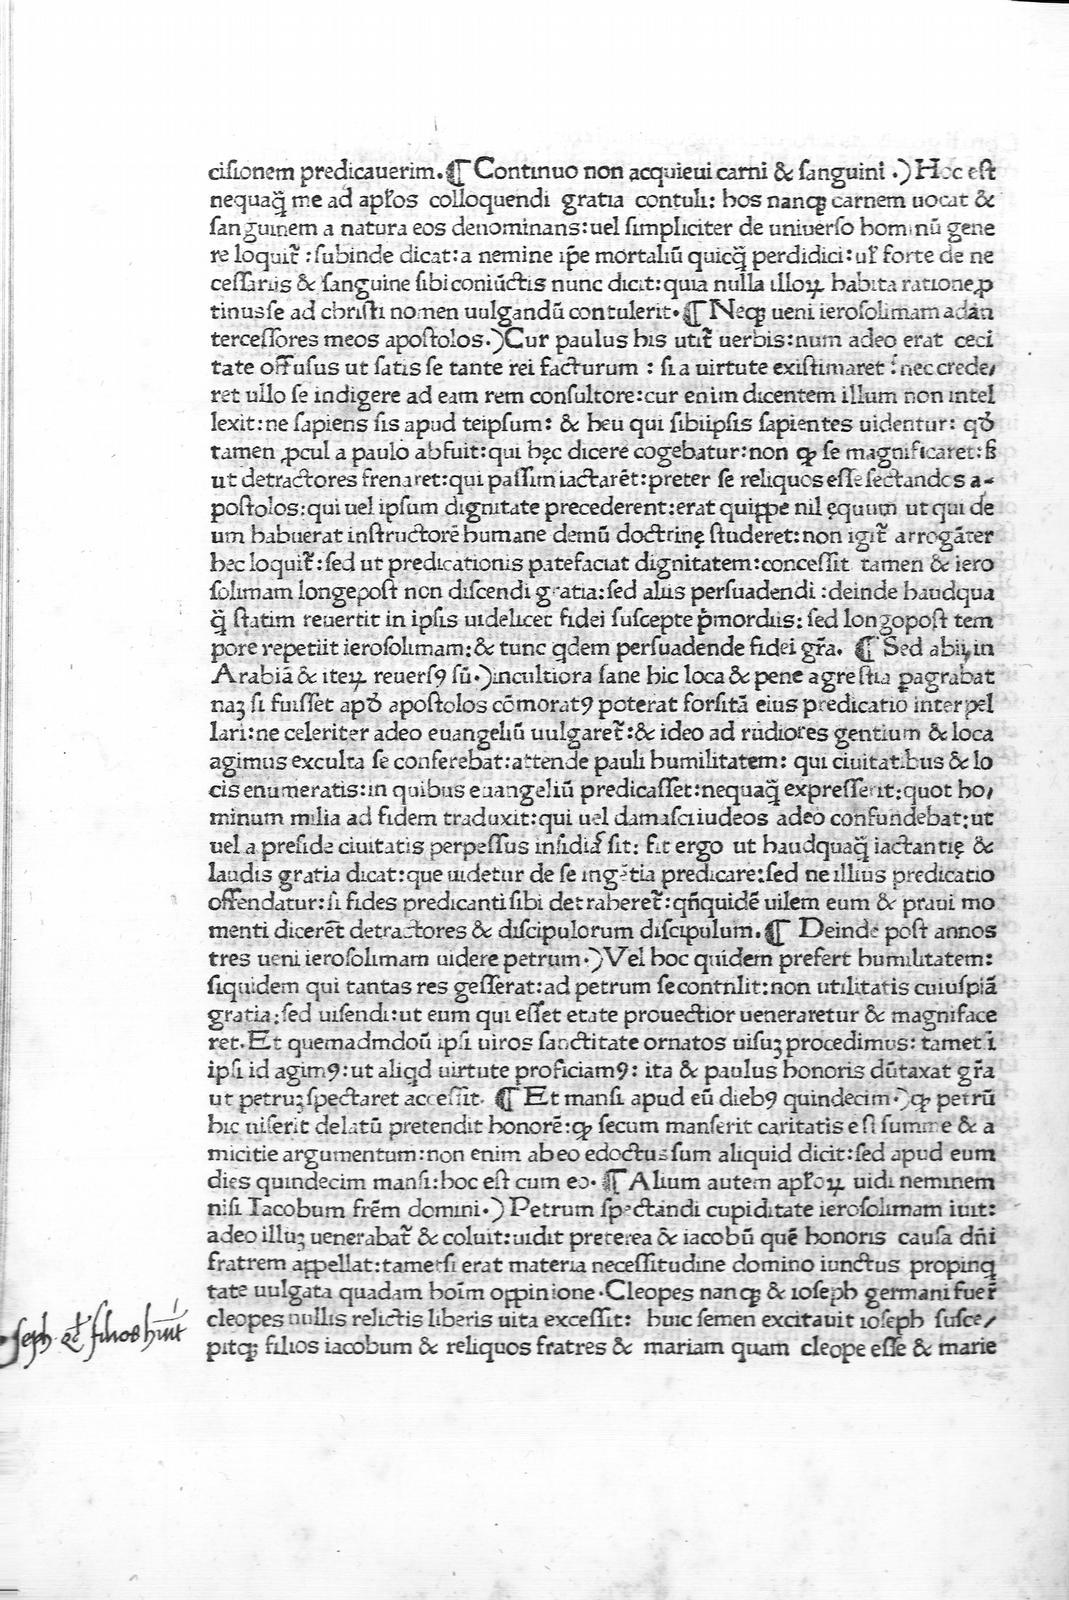 ciſionem predicauerim.¶ Continuo non acquieui carni & ſanguini .) Hoc eſt
nequaq̃ me ad apl̃os colloquendi gratia contuli: hos nanqꝫ carnem uocat &
ſanguinem a natura eos denominans:uel ſimpliciter de uniuerſo hominũ gene
re loquit̃ :ſubinde dicat:a nemine ip̃e mortaliũ quicq̃ perdidici:ul̃ forte de ne
ceſſariis & ſanguine ſibi coniũctis nunc dicit:quia nulla illoꝝ habita ratione ꝓ
tinus ſe ad chriſti nomen uulgandũ contulerit.¶ Neqꝫ ueni ieroſolimam ad ãn
terceſſores meos apoſtolos.)Cur paulus his utit̃ uerbis:num adeo erat ceci
tate offuſus ut ſatis ſe tante rei facturum : ſi a uirtute exiſtimaret : nec crede/
ret ullo ſe indigere ad eam rem conſultore:cur enim dicentem illum non intel
lexit:ne ſapiens ſis apud teipſum: & heu qui ſibiipſis ſapientes uidentur: qđ
tamen ꝓcul a paulo abfuit:qui hęc dicere cogebatur:non qꝫ ſe magnificaret:ß
ut detractores frenaret:qui paſſim iactarẽt:preter ſe reliquos eſſe ſectandos a-
poſtolos:qui uel ipſum dignitate precederent:erat quippe nil ęquum ut qui de
um habuerat inſtructorẽ humane demũ doctrinę ſtuderet:non igit̃ arrogãter
hec loquit̃:ſed ut predicationis patefaciat dignitatem:conceſſit tamen & iero
ſolimam longepoſt non diſcendi gratia:ſed alus perſuadendi :deinde haudqua
q̃ ſtatim reuertit in ipſis uidelicet fidei ſuſcepte p̃mordiis: ſed longopoſt tem
pore repetiit ieroſolimam:& tunc qdem perſuadende fidei gr̃a. ¶ Sed abii in
Arabiã & iteꝝ reuerſꝯ ſũ.)incultiora ſane hic loca & pene agreſtia ꝑagrabat
naꝫ ſi fuiſſet apđ apoſtolos cõmoratꝯ poterat forſitã eius predicatio interpel
lari:ne celeriter adeo euangeliũ uulgaret̃:& ideo ad rudiores gentium & loca
agimus exculta ſe conferebat:attende pauli humilitatem: qui ciuitatibus & lo
cis enumeratis:in quibus euangeliũ predicaſſet:nequaq̃ expreſſerit:quot ho/
minum milia ad fidem traduxit:qui uel damaſci iudeos adeo confundebat:ut
uel a preſide ciuitatis perpeſſus inſidiaſ ſit: fit ergo ut haudquaq̃ iactantię &
laudis gratia dicat:que uidetur de ſe ingẽtia predicare:ſed ne illius predicatio
offendatur:ſi fides predicanti ſibi detraheret̃:qñquidẽ uilem eum & praui mo
menti dicerẽt detractores & diſcipulorum diſcipulum.¶ Deinde poſt annos
tres ueni ieroſolimam uidere petrum.)Vel hoc quidem prefert humilitatem:
ſiquidem qui tantas res geſſerat:ad petrum ſe contnlit:non utilitatis cuiuſpiã
gratia:ſed uiſendi:ut eum qui eſſet etate prouectior ueneraretur & magniface
ret.Et quemadmdoũ ipſi uiros ſanctitate ornatos uiſuꝫ procedimus: tametſi
ipſi id agimꝯ:ut aliqd uirtute proficiamꝯ: ita & paulus honoris dũtaxat gr̃a
ut petruꝫ ſpectaret acceſſit. ¶ Et manſi apud eũ diebꝯ quindecim.)qꝫ petrũ
hic uiſerit delatũ pretendit honorẽ:qꝫ ſecum manſerit caritatis eſt ſumme & a
micitie argumentum:non enim ab eo edoctus ſum aliquid dicit:ſed apud eum
dies quindecim manſi:hoc eſt cum eo.¶ Alium autem apl̃oꝝ uidi neminem
niſi Iacobum fr̃em domini.) Petrum ſpectandi cupiditate ieroſolimam iuit:
adeo illuꝫ uenerabat̃ & coluit:uidit preterea & iacobũ quẽ honoris cauſa dñi
fratrem appellat:tametſi erat materia neceſſitudine domino iunctus propinq
tate uulgata quadam hoim oppinione.Cleopes nanqꝫ & ioſeph germani fuer̃
cleopes nullis relictis liberis uita exceſſit: huic ſemen excitauit ioſeph ſuſce/
pitqꝫ filios iacobum & reliquos fratres & mariam quam cleope eſſe & marie
ſeph & filios hmt